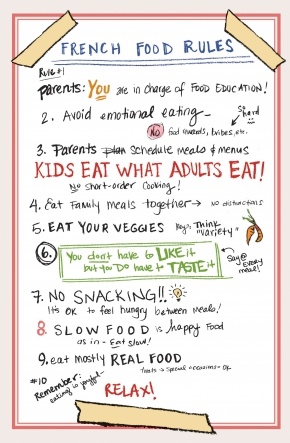 FRENCH FOOD RULES
Rule #1
Parents: You are in charge of FOOD EDUCATION!
2. Avoid emotional eating -
NO food rewards, bribes, etc.
3. Parents plan schedule meals & menus
KIDS EAT WHAT ADULTS EAT!
No short-order cooking!
4. Eat Family meals together → no distractions
5. EAT YOUR VEGGIES Key: Think "Variety"
6. You don't have to LIKE it
but you DO have to TASTE it
Say @ EVERY meal!
7. NO SNACKING!!
It's OK to feel hungry between meals!
8. SLOW FOOD is happy Food
as in - Eat slow!
9. eat mostly REAL FOOD
treats → special occasions - OK
#10
Remember:
eating is joyful -
RELAX!